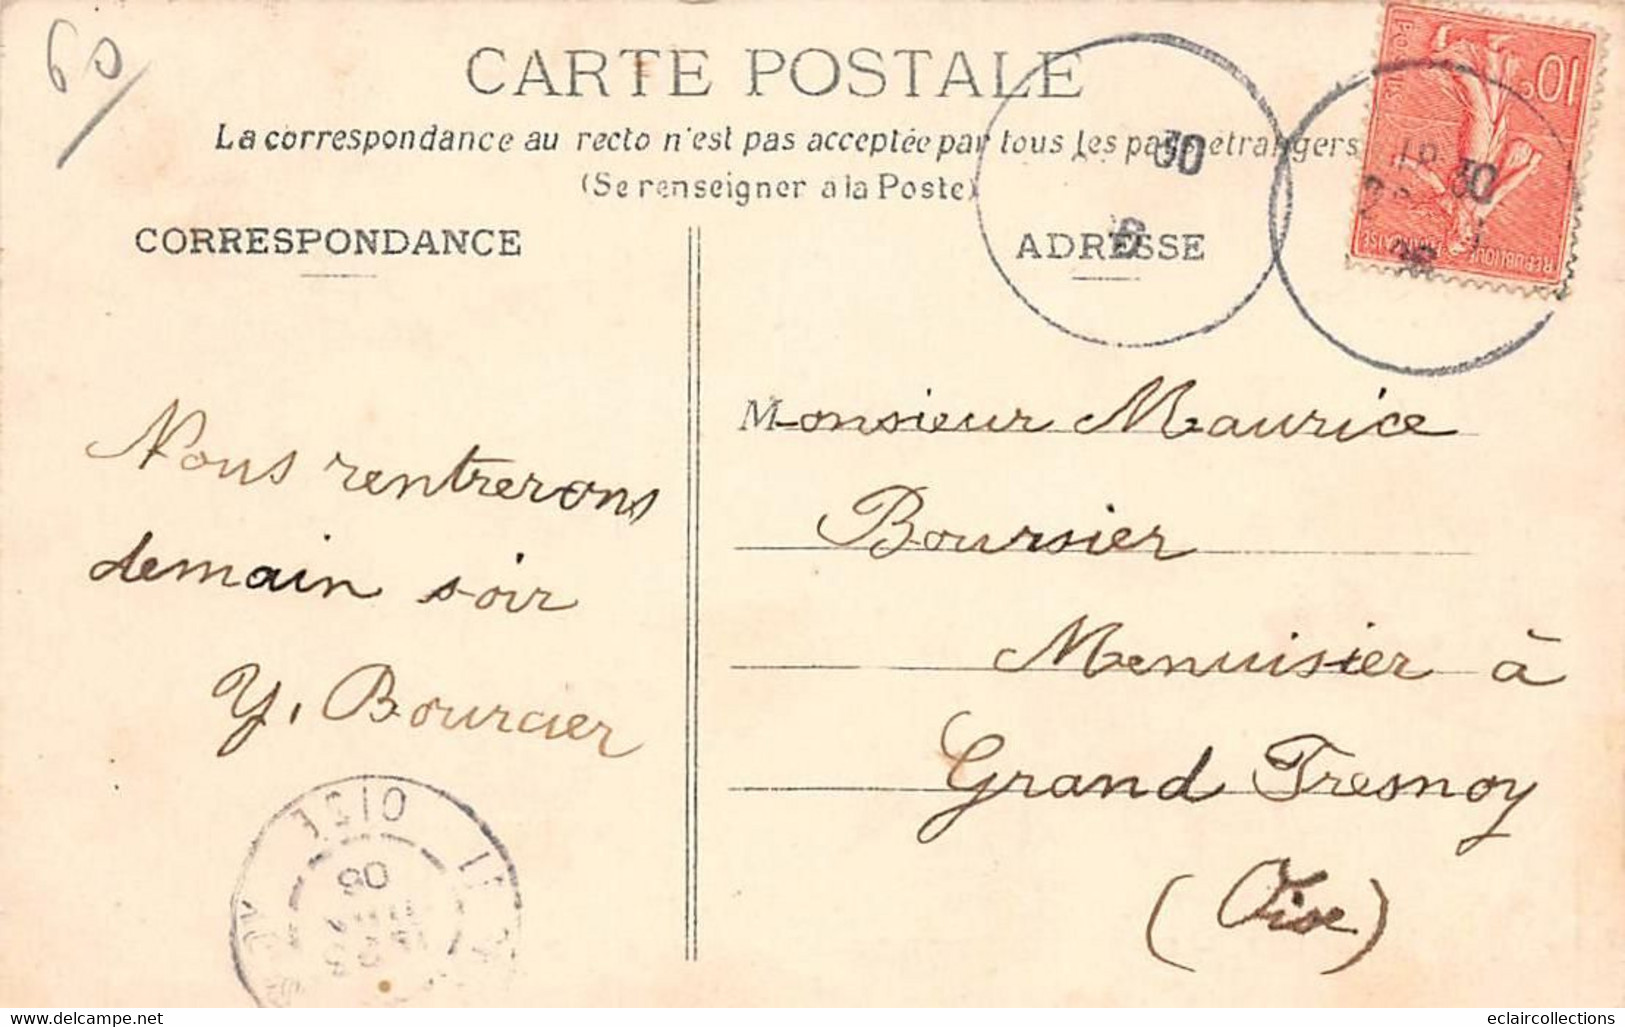 60
CARTE POSTALE
La correspondance au recto n'est pas acceptée par tous les pays étrangers
(Se renseigner à la Poste)
CORRESPONDANCE
ADRESSE
30
30
10c
REPUBLIQUE FRANÇAISE
Nous rentrerons
demain soir
Y. Bourcier
Monsieur Maurice
Boursier
Menuisier à
Grand Fresnoy
(Oise)
OISE
06
delcampe.net
eclaircollections